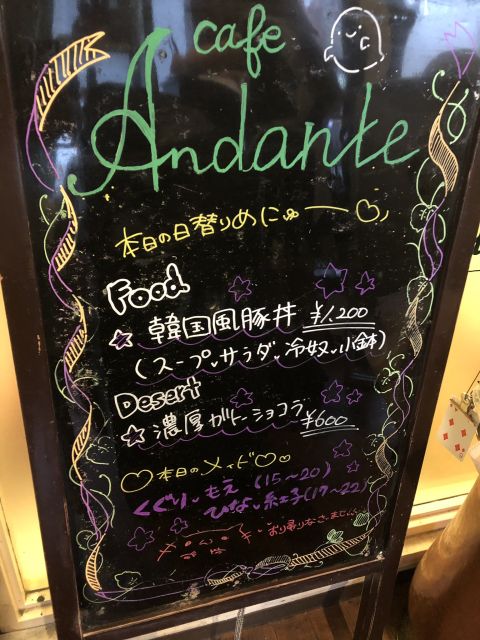 cafe
Andante
本日の日替りめにゅー♡
Food
☆ 韓国風豚丼 ¥1,200
(スープ、サラダ、冷奴、小鉢)
Desert
☆ 濃厚ガトーショコラ ¥600
♡本日のメイド♡
くぐり、もえ (15〜20)
ひな、紅子(17〜22)
お帰りなさいませ